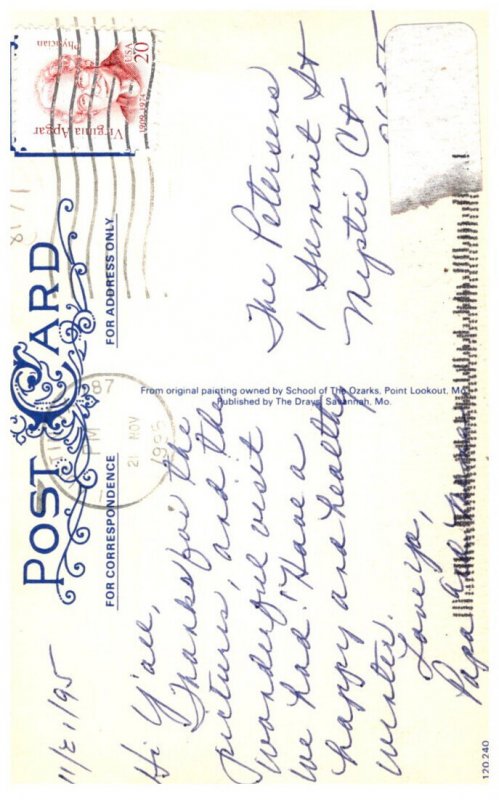 11/21/95
POST CARD
FOR CORRESPONDENCE
FOR ADDRESS ONLY
Hi Y'all,
Thanks for the
pictures, and the
wonderful visit
we had! Have a
happy and healthy
winter.
Love ya,
Papa and
The Petersens
1 Summit St
Mystic Ct
From original painting owned by School of The Ozarks, Point Lookout, Mo.
Published by The Drays, Savannah, Mo.
Virginia Apgar
1909-1974
Physician
USA 20
21 NOV
1995
87
120 240